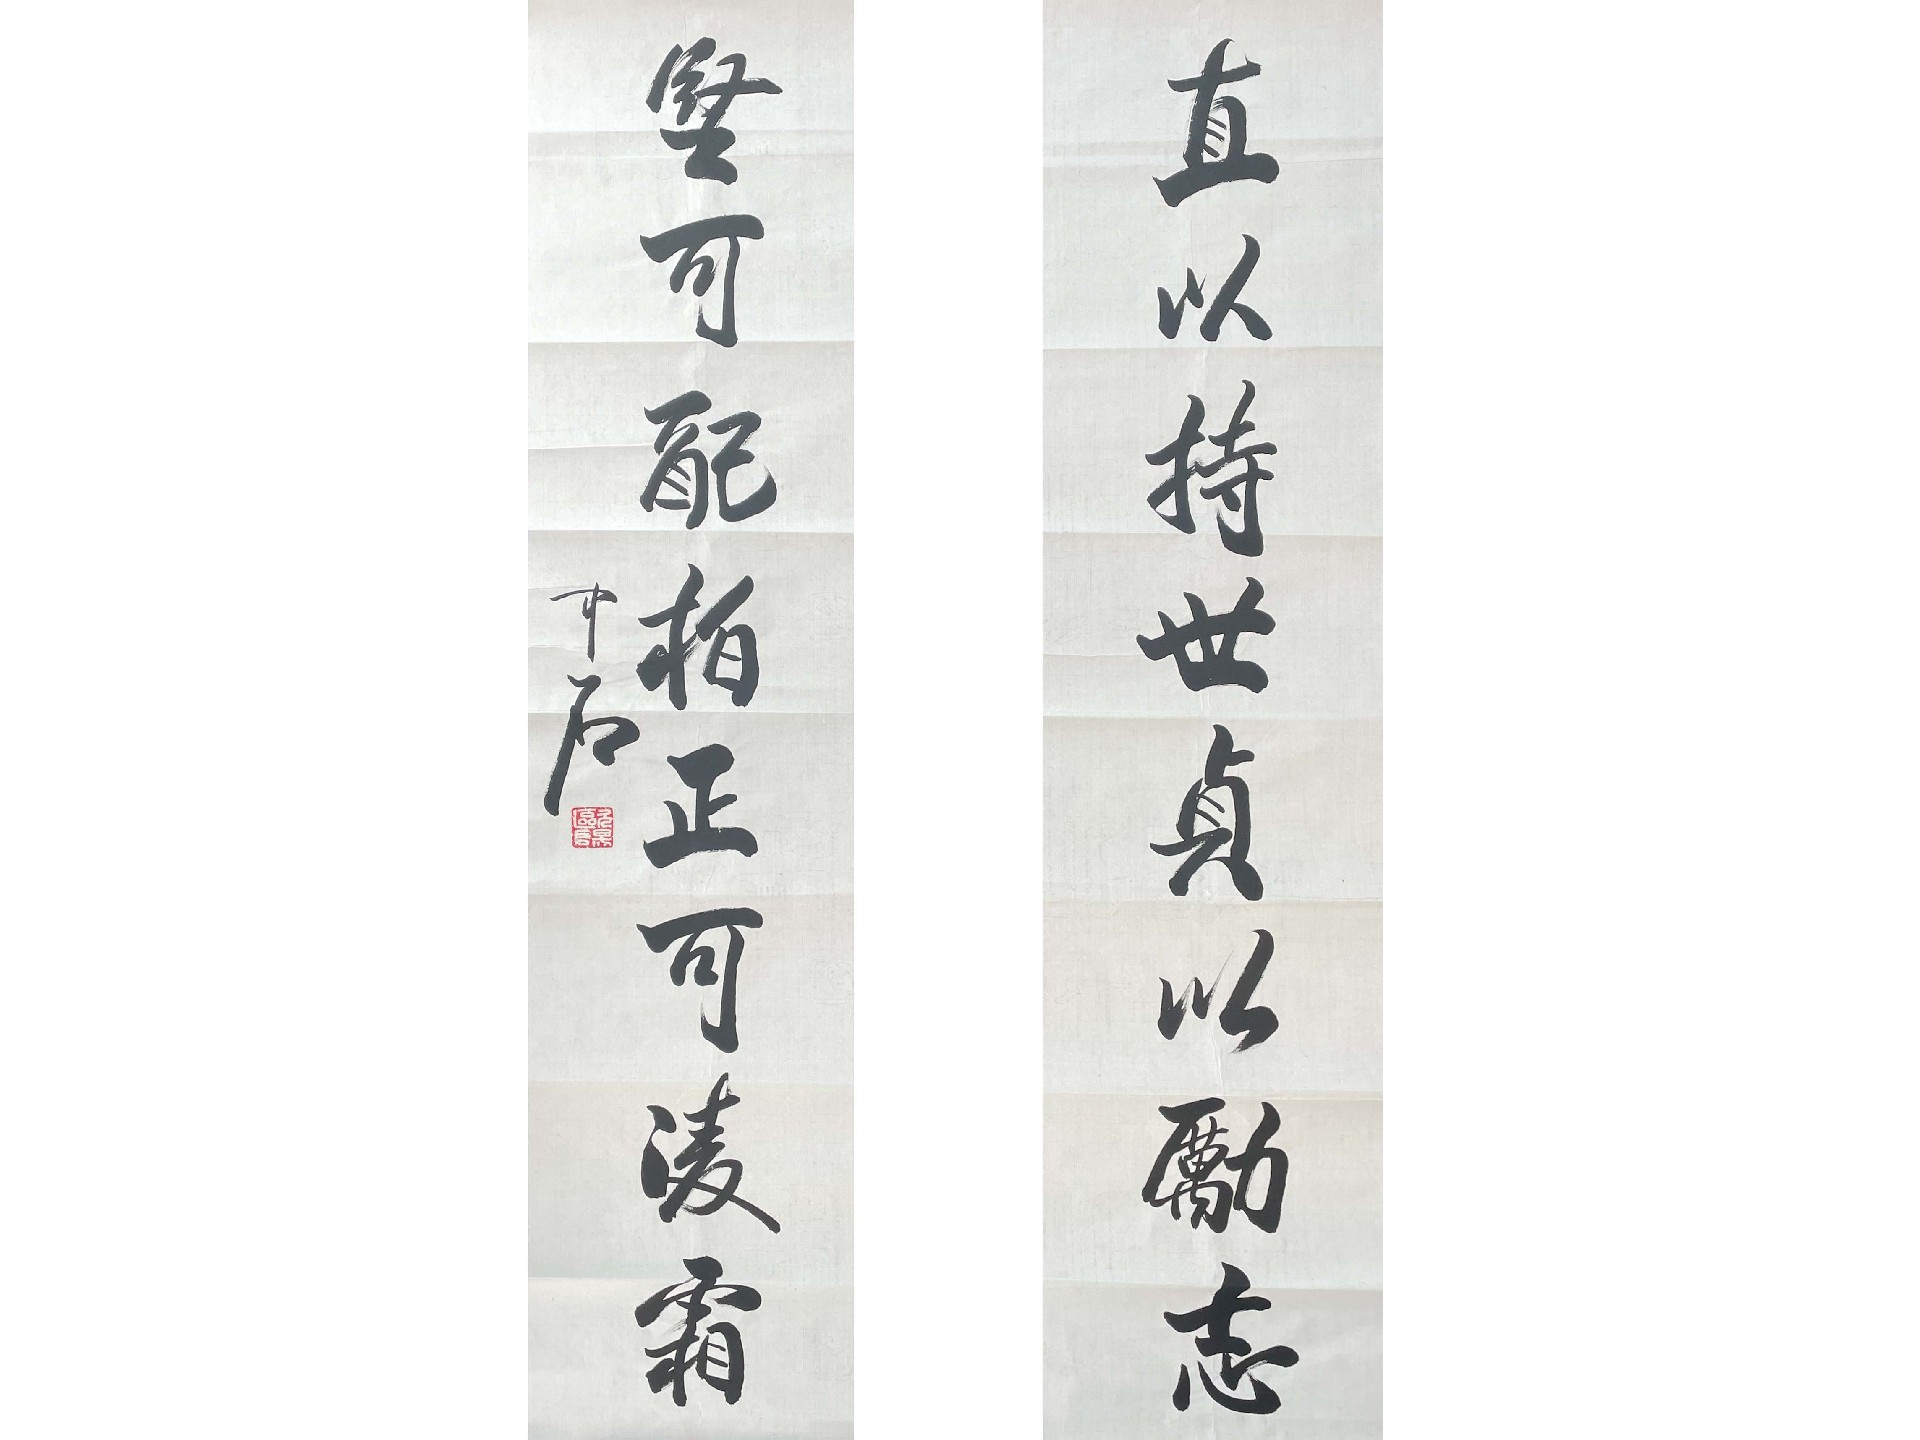 直以持世貞以勵志
堅可配柏正可淩霜
中石